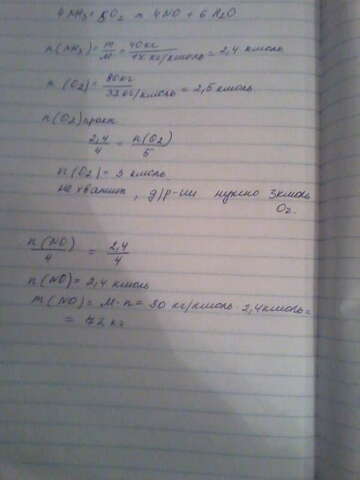 4 NH₃ + 5O₂ = 4NO + 6 H₂O
n(NH₃) = m/M = 40 кг/17 кг/кмоль = 2,4 кмоль
n (O₂) = 80кг/32 кг/кмоль = 2,5 кмоль
n(O₂)практ
2,4/4 = n(O₂)/5
n(O₂) = 3 кмоль
не хватит, д/р-ции нужно 3кмоль
O₂.
n(NO)/4 = 2,4/4
n(NO) = 2,4 кмоль
m(NO) = M·n = 30 кг/кмоль · 2,4кмоль =
= 72 кг